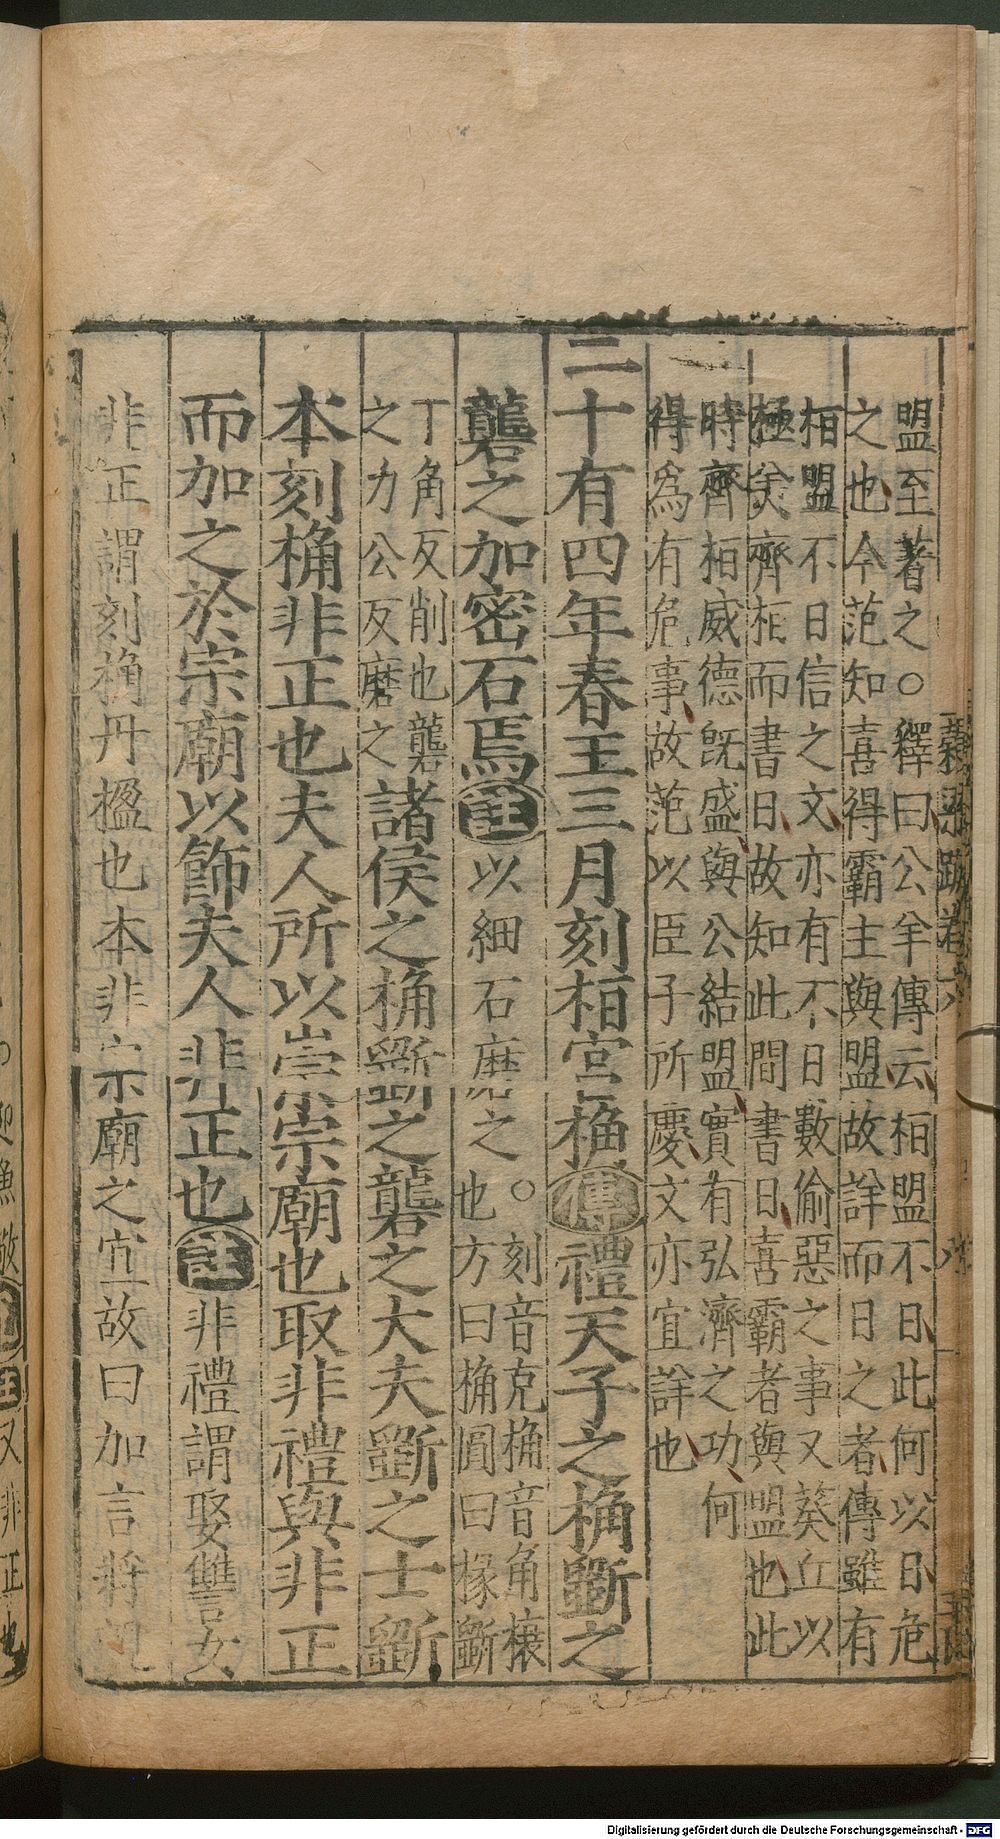 盟至著之○釋曰公羊傳云桓盟不日此何以日危
之也今范知喜得霸主與盟故詳而日之者傳雖有
桓盟不日信之文亦有不日數偷惡之事又葵丘以
極美齊桓而書日故知此間書日喜霸者與盟也此
時齊桓威德既盛與公結盟實有弘濟之功何
得爲有危事故范以臣子所慶文亦宜詳也
二十有四年春王三月刻桓宮桷傳禮天子之桷斲之
礱之加密石焉註以細石磨之○刻音克桷音角榱
也方曰桷圓曰椽斲
丁角反削也礱
之力公反磨之諸侯之桷斲之礱之大夫斲之士斲
本刻桷非正也夫人所以崇宗廟也取非禮與非正
而加之於宗廟以飾夫人非正也註非禮謂娶讐女
非正謂刻桷丹楹也本非宗廟之宜故曰加言將
穀梁疏卷六
Digitalisierung gefördert durch die Deutsche Forschungsgemeinschaft - DFG